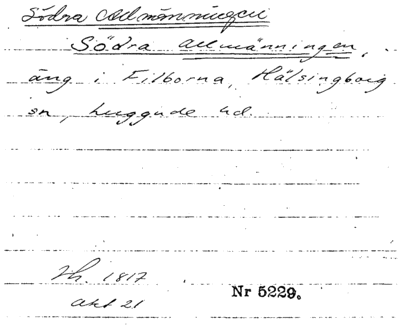 Södra Allmänningen
Södra allmänningen,
äng i Filborna, Hälsingborg
sn, Luggude hd.
Th. 1817
akt 21
Nr 5229.